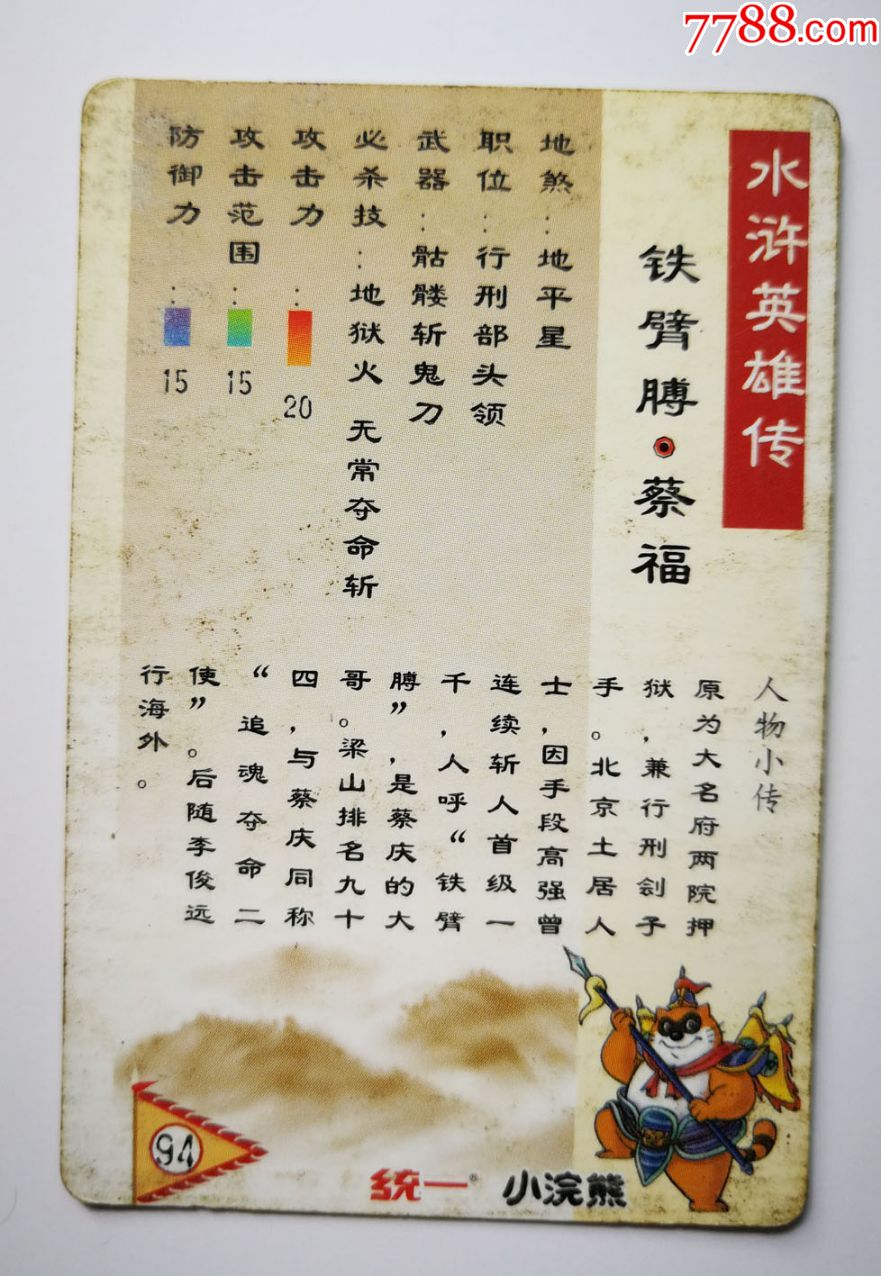 7788.com
水浒英雄传
铁臂膊·蔡福
地煞:地平星
职位:行刑部头领
武器:骷髅斩鬼刀
必杀技:地狱火 无常夺命斩
攻击力:20
攻击范围:15
防御力:15
人物小传
原为大名府两院押
狱,兼行刑刽子
手。北京土居人
士,因手段高强曾
连续斩人首级一
千,人呼“铁臂
膊”,是蔡庆的大
哥。梁山排名九十
四,与蔡庆同称
“追魂夺命二
使”。后随李俊远
行海外。
94
统一®
小浣熊